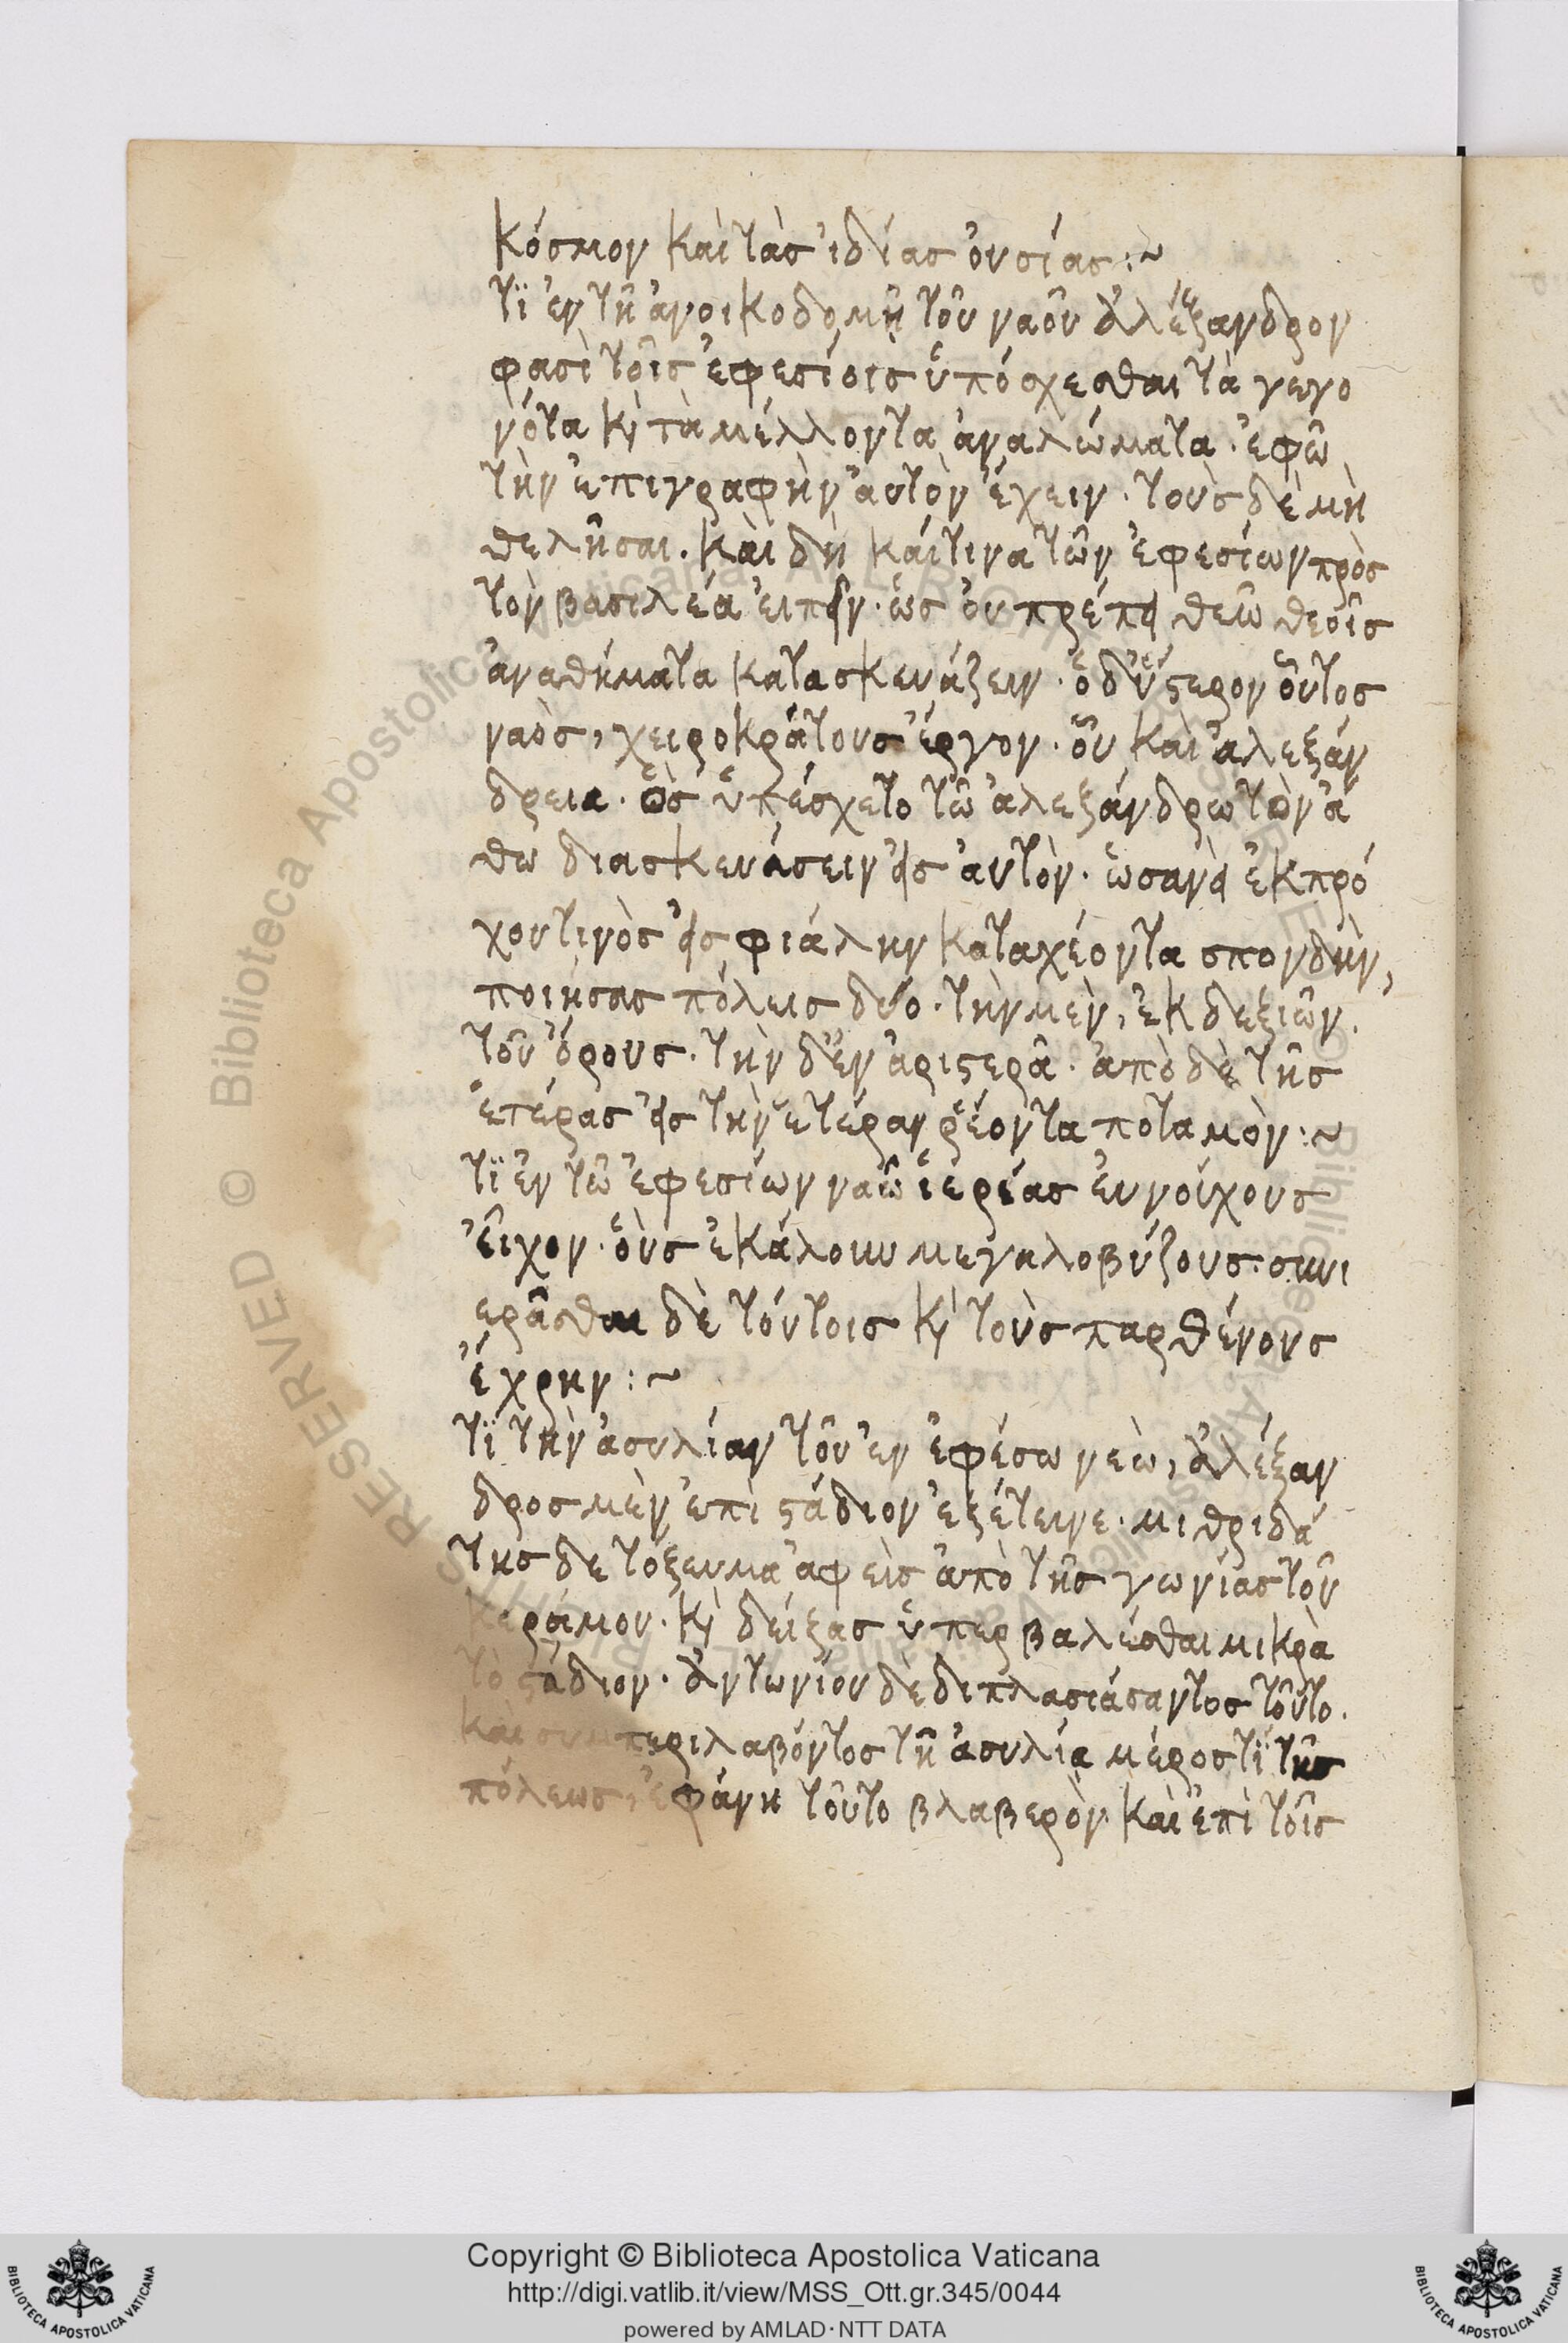 κόσμον καὶ τὰς ἰδίας ὀυσίας :~
τϊ ἐν τῆ ἀνοικοδομῆ τοῦ ναοῦ ἀλέξανδρον
φασὶ τοῖς ἐφεσίοις ὑπόσχεσθαι τὰ γεγο
νότα κ τὰ μέλλοντα ἀναλώματα · ἐφῶ
τὴν ἐπιγραφὴν ἀυτὸν ἔχειν · τοὺς δὲ μὴ
θελῆσαι . καὶ δὴ καίτινα τῶν ἐφεσίων πρὸς
τὸν βασιλέα ἐιπεῖν · ὡς ὀυ πρέπει θεῶ θεοῖς
ἀναθήματα κατασκευάζειν · ὁ δ' ὕστερον οὗτος
ναὸς, χειροκράτους ἔργον · οὗ καὶ ἀλεξάν
δρεια · ὃς ὑπέσχετο τῶ ἀλεξάνδρω τὸν ἄ
θω διασκευάσειν εἰς ἀυτὸν · ὡσανεὶ ἐκ πρό
χου τινὸς εἰς φιάλην καταχέοντα σπονδὴν,
ποιήσας πόλεις δύο · τὴν μὲν, ἐκ δεξιῶν ·
τοῦ ὄρους · τὴν δ' ἐν ἀριστερᾶ · ἀπὸ δὲ τῆς
ἑτέρας εἰς τὴν ἑτέραν ῥέοντα ποταμὸν :~
τϊ ἐν τῶ ἐφεσίων ναῶ ἱερέας ἐυνούχους
ἐῖχον · οὓς ἐκάλουν μεγαλοβύζους · συνι
ερᾶσθαι δὲ τόυτοις κ τοὺς παρθένους
ἔχρην :~
τϊ τὴν ἀσυλίαν τοῦ ἐν ἐφέσω νεὼ, ἀλέξαν
δρος μὲν ἐπὶ στάδιον ἐξέτεινε · μιθριδά
της δε τόξευμα ἀφεὶς ἀπὸ τῆς γωνίας τοῦ
κεράμου · κ δείξας ὑπερβαλέσθαι μικρὰ
τὸ στάδιον · ἀντωνίου δὲ διπλασιάσαντος τοῦτο ·
καὶ συμπεριλαβόντος τῆ ἀσυλία μέρος τϊ τῆς
πόλεως, ἐφάνη τοῦτο βλαβερὸν καὶ ἐπὶ τοῖς
Copyright © Biblioteca Apostolica Vaticana
http://digi.vatlib.it/view/MSS_Ott.gr.345/0044
powered by AMLAD·NTT DATA